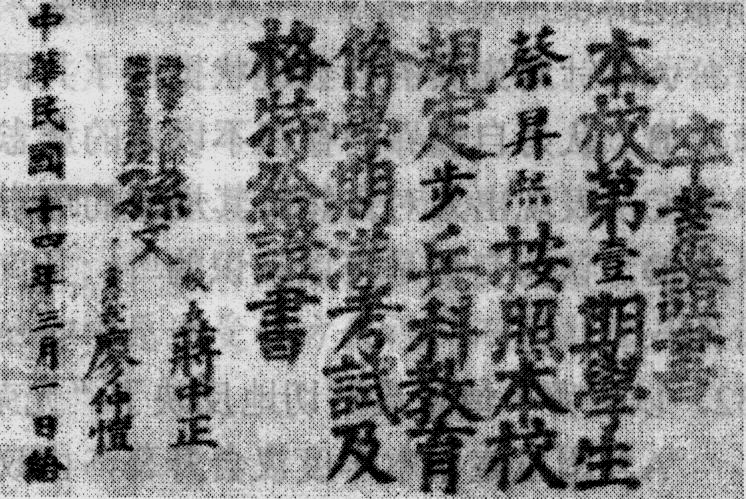 卒業證書
本校第壹期學生
蔡昇熙按照本校
規定步兵科教育
脩學期滿考試及
格特給證書
孫文
校長蔣中正
廖仲愷
中華民國十四年三月一日給